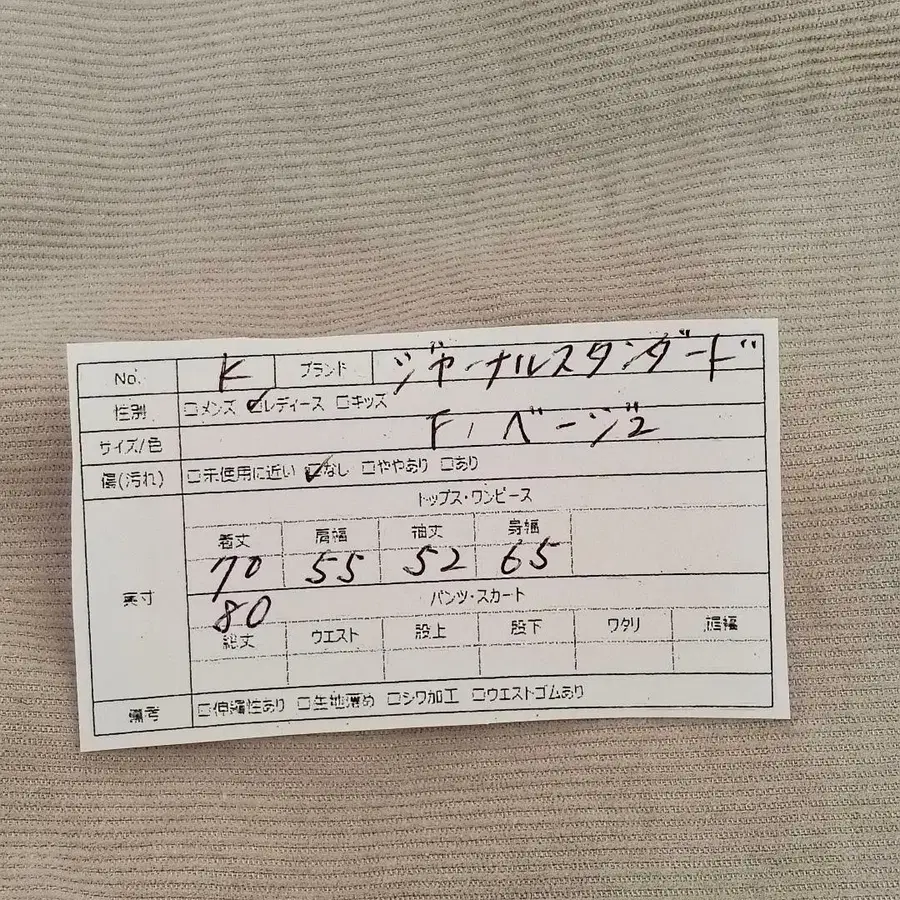 No. K ブランド ジャーナルスタンダード
性別 □メンズ ☑レディース □キッズ
サイズ/色 F/ベージ2
傷(汚れ) □未使用に近い ☑なし □ややあり □あり
トップス・ワンピース
着丈 肩幅 袖丈 身幅
70 55 52 65
実寸
80
パンツ・スカート
総丈 ウエスト 股上 股下 ワタリ 裾幅
備考 □伸縮性あり □生地薄め □シワ加工 □ウエストゴムあり